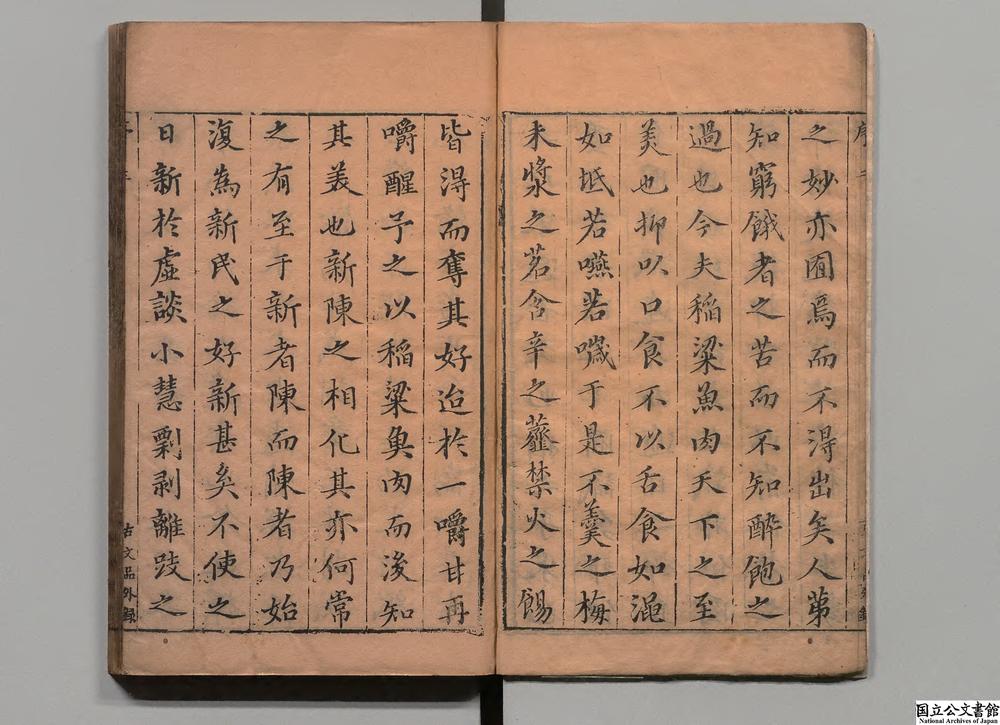 序
之妙亦囿焉而不淂出矣人苐
知窮餓者之苦而不知醉飽之
過也今夫稲粱魚肉天下之至
羙也抑以口食不以舌食如澠
如坻若嚥若嘰于是不羮之梅
未漿之茗含辛之虀禁火之餳
皆淂而奪其好迨於一嚼甘再
嚼醒予之以稲粱魚肉而後知
其羙也新陳之相化其亦何常
之有至于新者陳而陳者乃始
復為新民之好新甚矣不使之
日新於虛談小慧剽剥離跂之
古文品外録
国立公文書館
National Archives of Japan